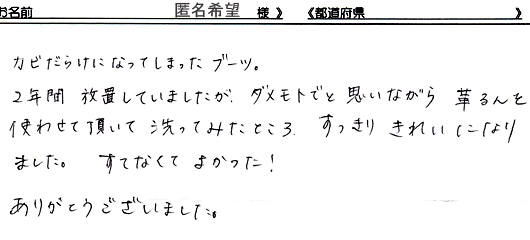 お名前 匿名希望 様 》 《都道府県 》
カビだらけになってしまったブーツ。
2年間 放置していましたが、ダメモトでと思いながら 革るんを
使わせて頂いて 洗ってみたところ、すっきり きれいになり
ました。 すてなくて よかった!
ありがとうございました。